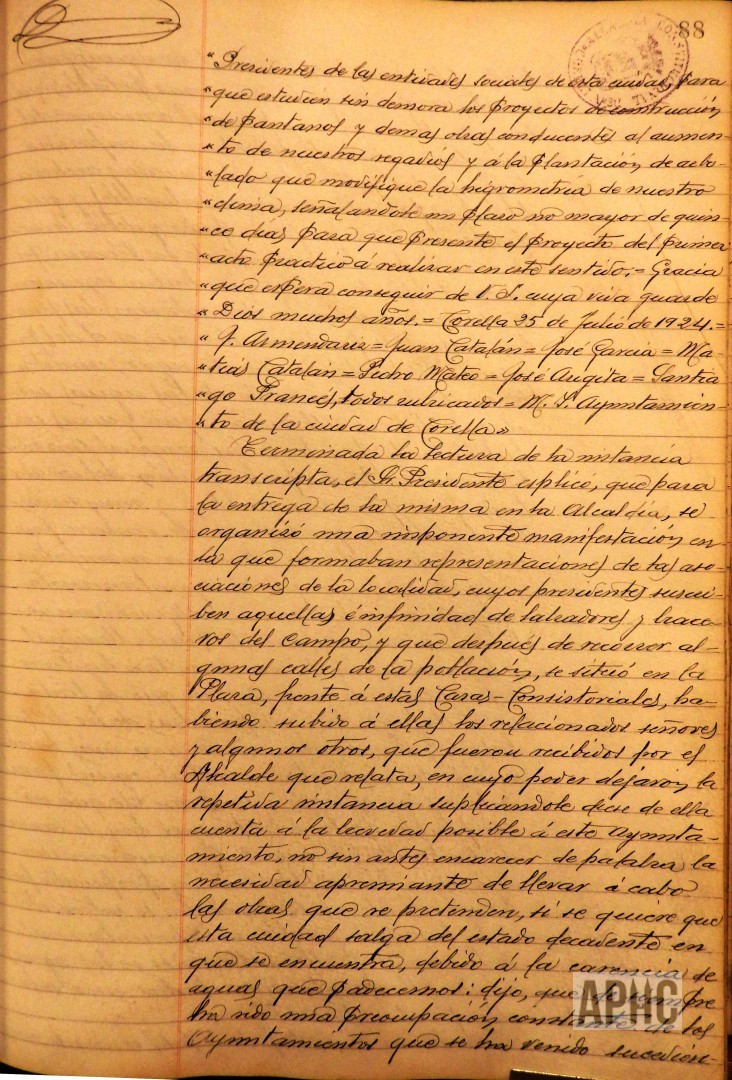 88
"Presidentes de las entidades sociales de esta ciudad, para
"que estudien sin demora los proyectos de construcción
"de pantanos y demas obras conducentes al aumen-
"to de nuestros regadíos y á la plantación de arbo-
"lado que modifique la higrometría de nuestro
"clima, señalandole un plazo no mayor de quin-
"ce días para que presente el proyecto del primer
"acto práctico á realizar en este sentido.= Gracia
"que espera conseguir de V. S. cuya vida guarde
"Dios muchos años.= Corella 25 de Julio de 1924.=
"J. Armendariz= Juan Catalán= José Garcia= Ma-
"tías Catalan= Pedro Mateo= José Augita= Santia
"go Francés, todos rubricados= M. I. Ayuntamien-
"to de la ciudad de Corella»
Terminada la lectura de la instancia
transcripta, el Sr. Presidente esplicó, que para
la entrega de la misma en la Alcaldía, se
organizó una imponente manifestación en
la que formaban representaciones de las aso-
ciaciones de la localidad, cuyos presidentes suscri-
ben aquella, é infinidad de labradores y brace-
ros del campo, y que después de recorrer al-
gunas calles de la población, se situó en la
Plaza, frente á estas Casas-Consistoriales, ha-
biendo subido á ellas los relacionados señores
y algunos otros, que fueron recibidos por el
Alcalde que relata, en cuyo poder dejaron la
repetida instancia suplicandole diese de ella
cuenta á la brevedad posible á este Ayunta-
miento, no sin antes encarecer de palabra la
necesidad apremiante de llevar á cabo
las obras que se pretenden, si se quiere que
esta ciudad salga del estado decadente en
que se encuentra, debido á la carencia de
aguas que padecemos: dijo, que siempre
ha sido una preocupación constante de los
Ayuntamientos que se ha venido sucedien-
APHC